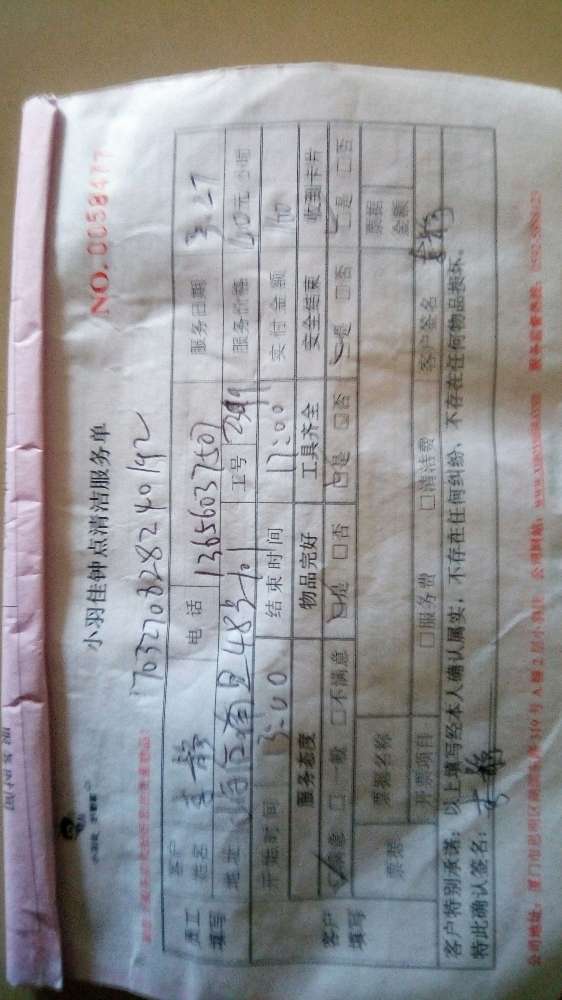 小羽佳 护卫者
小羽佳钟点清洁服务单
NO.0058477
1703270828240192
员工填写
客户姓名 李静 电话 13656037507 服务日期 3.27
地址 48号701 工号 2499 服务价格 40元/小时
开始时间 3:00 结束时间 17:00 实付金额
客户填写
服务态度 物品完好 工具齐全 安全结束 收到卡片
满意 □一般 □不满意 是 □否 是 □否 是 □否 是 □否
票据 票据名称 票据金额
开票项目 □服务费 □清洁费 客户签名
客户特别承诺：以上填写经本人确认属实，不存在任何纠纷，不存在任何物品损坏。
特此确认签名： 李静
公司地址：厦门市思明区 319号A栋2层小羽佳 公司网站： 服务监督热线：